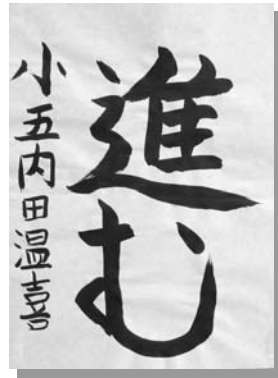 進む
小五内田温喜